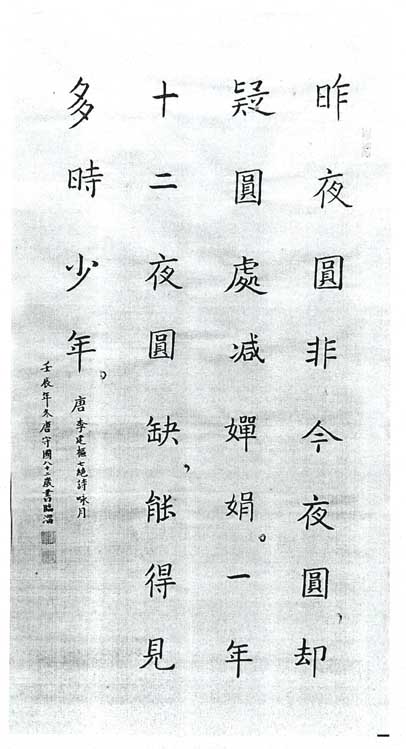 昨夜圓非今夜圓，却
疑圓處減嬋娟。一年
十二夜圓缺，能得見
多時少年。
唐 李建樞七絶詩咏月
壬辰年冬唐守國八十二歲書臨淄